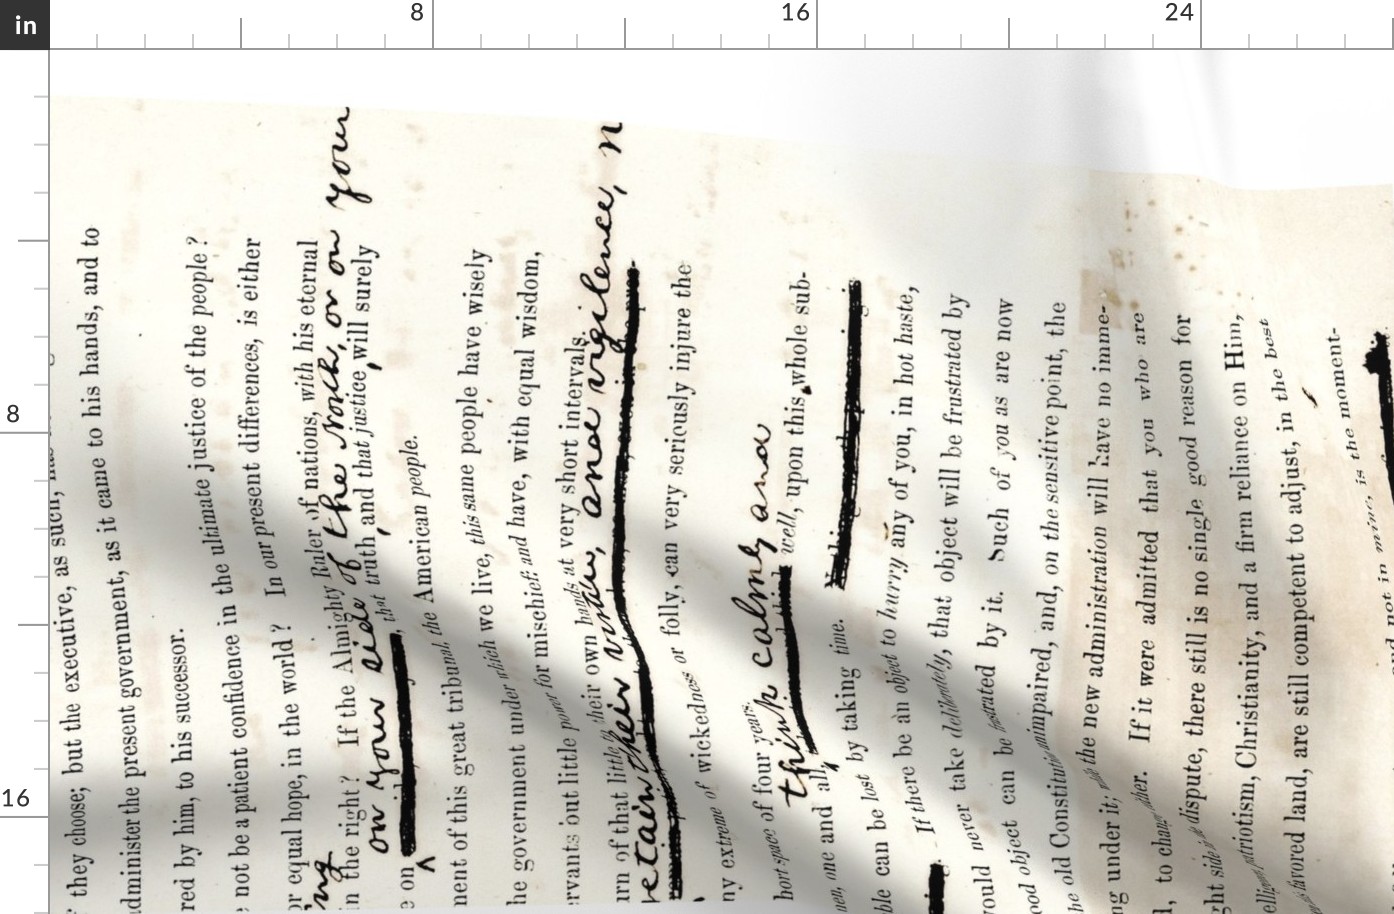 in
8
16
24
8
16
they choose; but the executive, as such,
administer the present government, as it came to his hands, and to
red by him, to his successor.
not be a patient confidence in the ultimate justice of the people?
or equal hope, in the world? In our present differences, is either
in the right? If the Almighty Ruler of nations, with his eternal
ng
on your side of the North, or on your
e on that truth, and that justice, will surely
ment of this great tribunal, the American people.
he government under which we live, this same people have wisely
ervants but little power for mischief; and have, with equal wisdom,
urn of that little to their own hands at very short intervals.
retain their virtue, and vigilence, n
ny extreme of wickedness or folly, can very seriously injure the
hort space of four years.
think calmly and
men, one and all, well, upon this whole sub-
ble can be lost by taking time.
If there be an object to hurry any of you, in hot haste,
would never take deliberately, that object will be frustrated by
ood object can be frustrated by it. Such of you as are now
he old Constitution unimpaired, and, on the sensitive point, the
ng under it; while the new administration will have no imme-
, to change either. If it were admitted that you who are
ght side in the dispute, there still is no single good reason for
elligence, patriotism, Christianity, and a firm reliance on Him,
favored land, are still competent to adjust, in the best
and not in mine, is the moment-